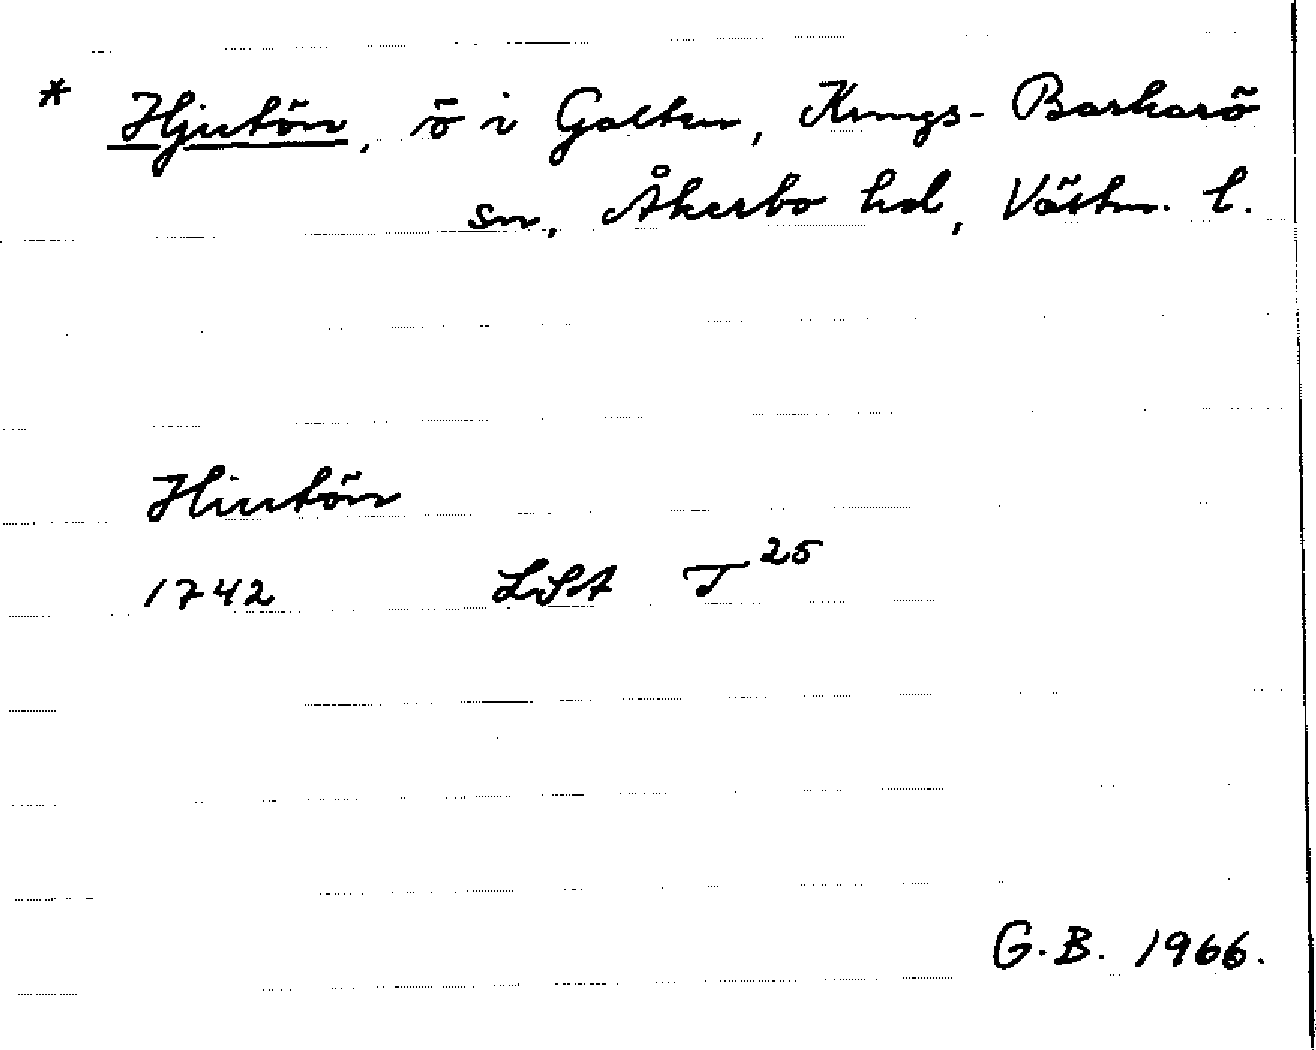 * Hjutön, ö i Galten, Kungs-Barkarö
sn, Åkerbo hd, Västm. l.
Hiutön
1742 LSA T 25
G.B. 1966.